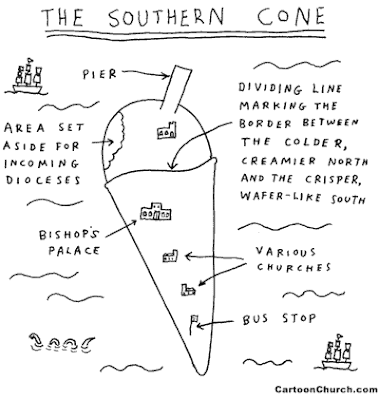 THE SOUTHERN CONE
PIER
DIVIDING LINE
MARKING THE
BORDER BETWEEN
THE COLDER,
CREAMIER NORTH
AND THE CRISPER,
WAFER-LIKE SOUTH
AREA SET
ASIDE FOR
INCOMING
DIOCESES
BISHOP'S
PALACE
VARIOUS
CHURCHES
BUS STOP
CartoonChurch.com